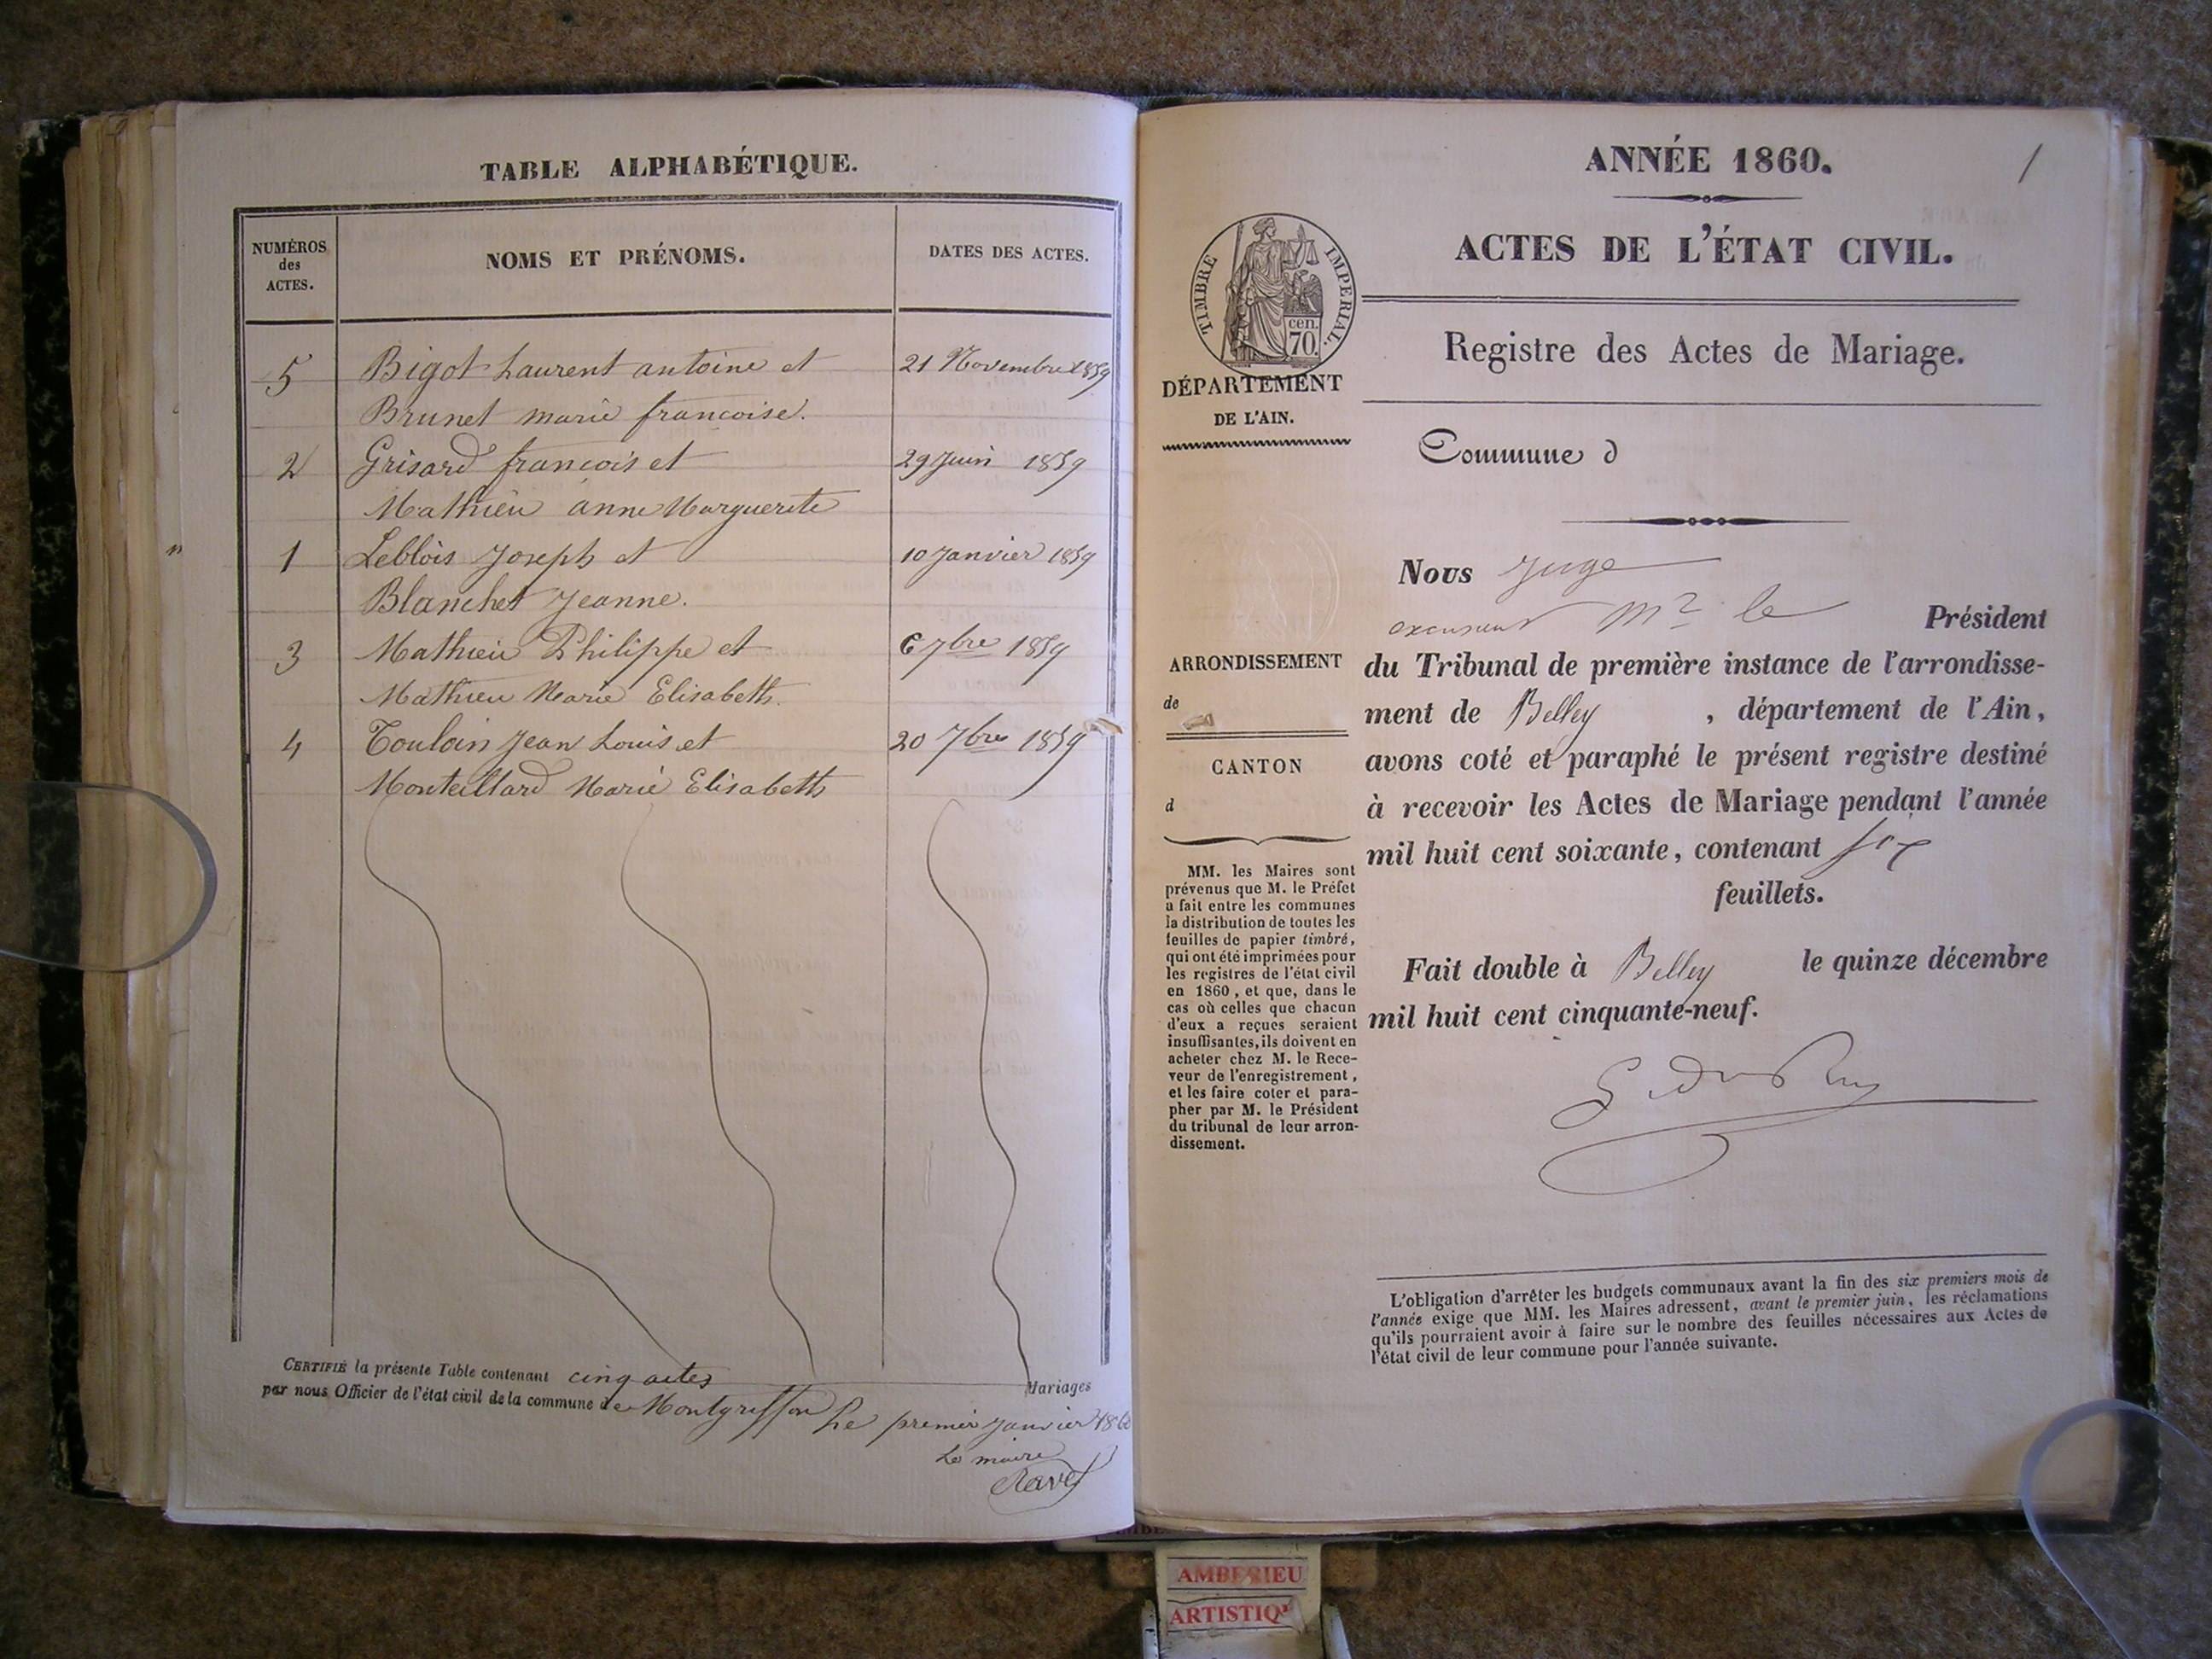 TABLE ALPHABÉTIQUE.
NUMÉROS des ACTES.
NOMS ET PRÉNOMS.
DATES DES ACTES.
5 Bigot Laurent antoine et 21 Novembre 1859
Brunet marie francoise.
2 Grisard francois et 29 Juin 1859
Mathieu anne Marguerite
1 Leblois Joseph et 10 Janvier 1859
Blanchet Jeanne.
3 Mathieu Philippe et 6 7bre 1859
Mathieu Marie Elisabeth.
4 Jean Louis et 20 7bre 1859
Monteillard Marie Elisabeth
CERTIFIÉ la présente Table contenant cinq actes Mariages
par nous Officier de l'état civil de la commune de Montgriffon Le premier Janvier 1860
Le maire
Ravet
ANNÉE 1860.
1
ACTES DE L'ÉTAT CIVIL.
TIMBRE IMPERIAL.
cen.
70.
Registre des Actes de Mariage.
DÉPARTEMENT
DE L'AIN.
Commune d
Nous Juge
Mr le Président
du Tribunal de première instance de l'arrondisse-
ment de Belley , département de l'Ain,
avons coté et paraphé le présent registre destiné
à recevoir les Actes de Mariage pendant l'année
mil huit cent soixante, contenant six
feuillets.
Fait double à Belley le quinze décembre
mil huit cent cinquante-neuf.
ARRONDISSEMENT
de
CANTON
d
MM. les Maires sont
prévenus que M. le Préfet
a fait entre les communes
la distribution de toutes les
feuilles de papier timbré,
qui ont été imprimées pour
les registres de l'état civil
en 1860, et que, dans le
cas où celles que chacun
d'eux a reçues seraient
insuffisantes, ils doivent en
acheter chez M. le Rece-
veur de l'enregistrement,
et les faire coter et para-
pher par M. le Président
du tribunal de leur arron-
dissement.
L'obligation d'arrêter les budgets communaux avant la fin des six premiers mois de
l'année exige que MM. les Maires adressent, avant le premier juin, les réclamations
qu'ils pourraient avoir à faire sur le nombre des feuilles nécessaires aux Actes de
l'état civil de leur commune pour l'année suivante.
AMBERIEU
ARTISTIQ